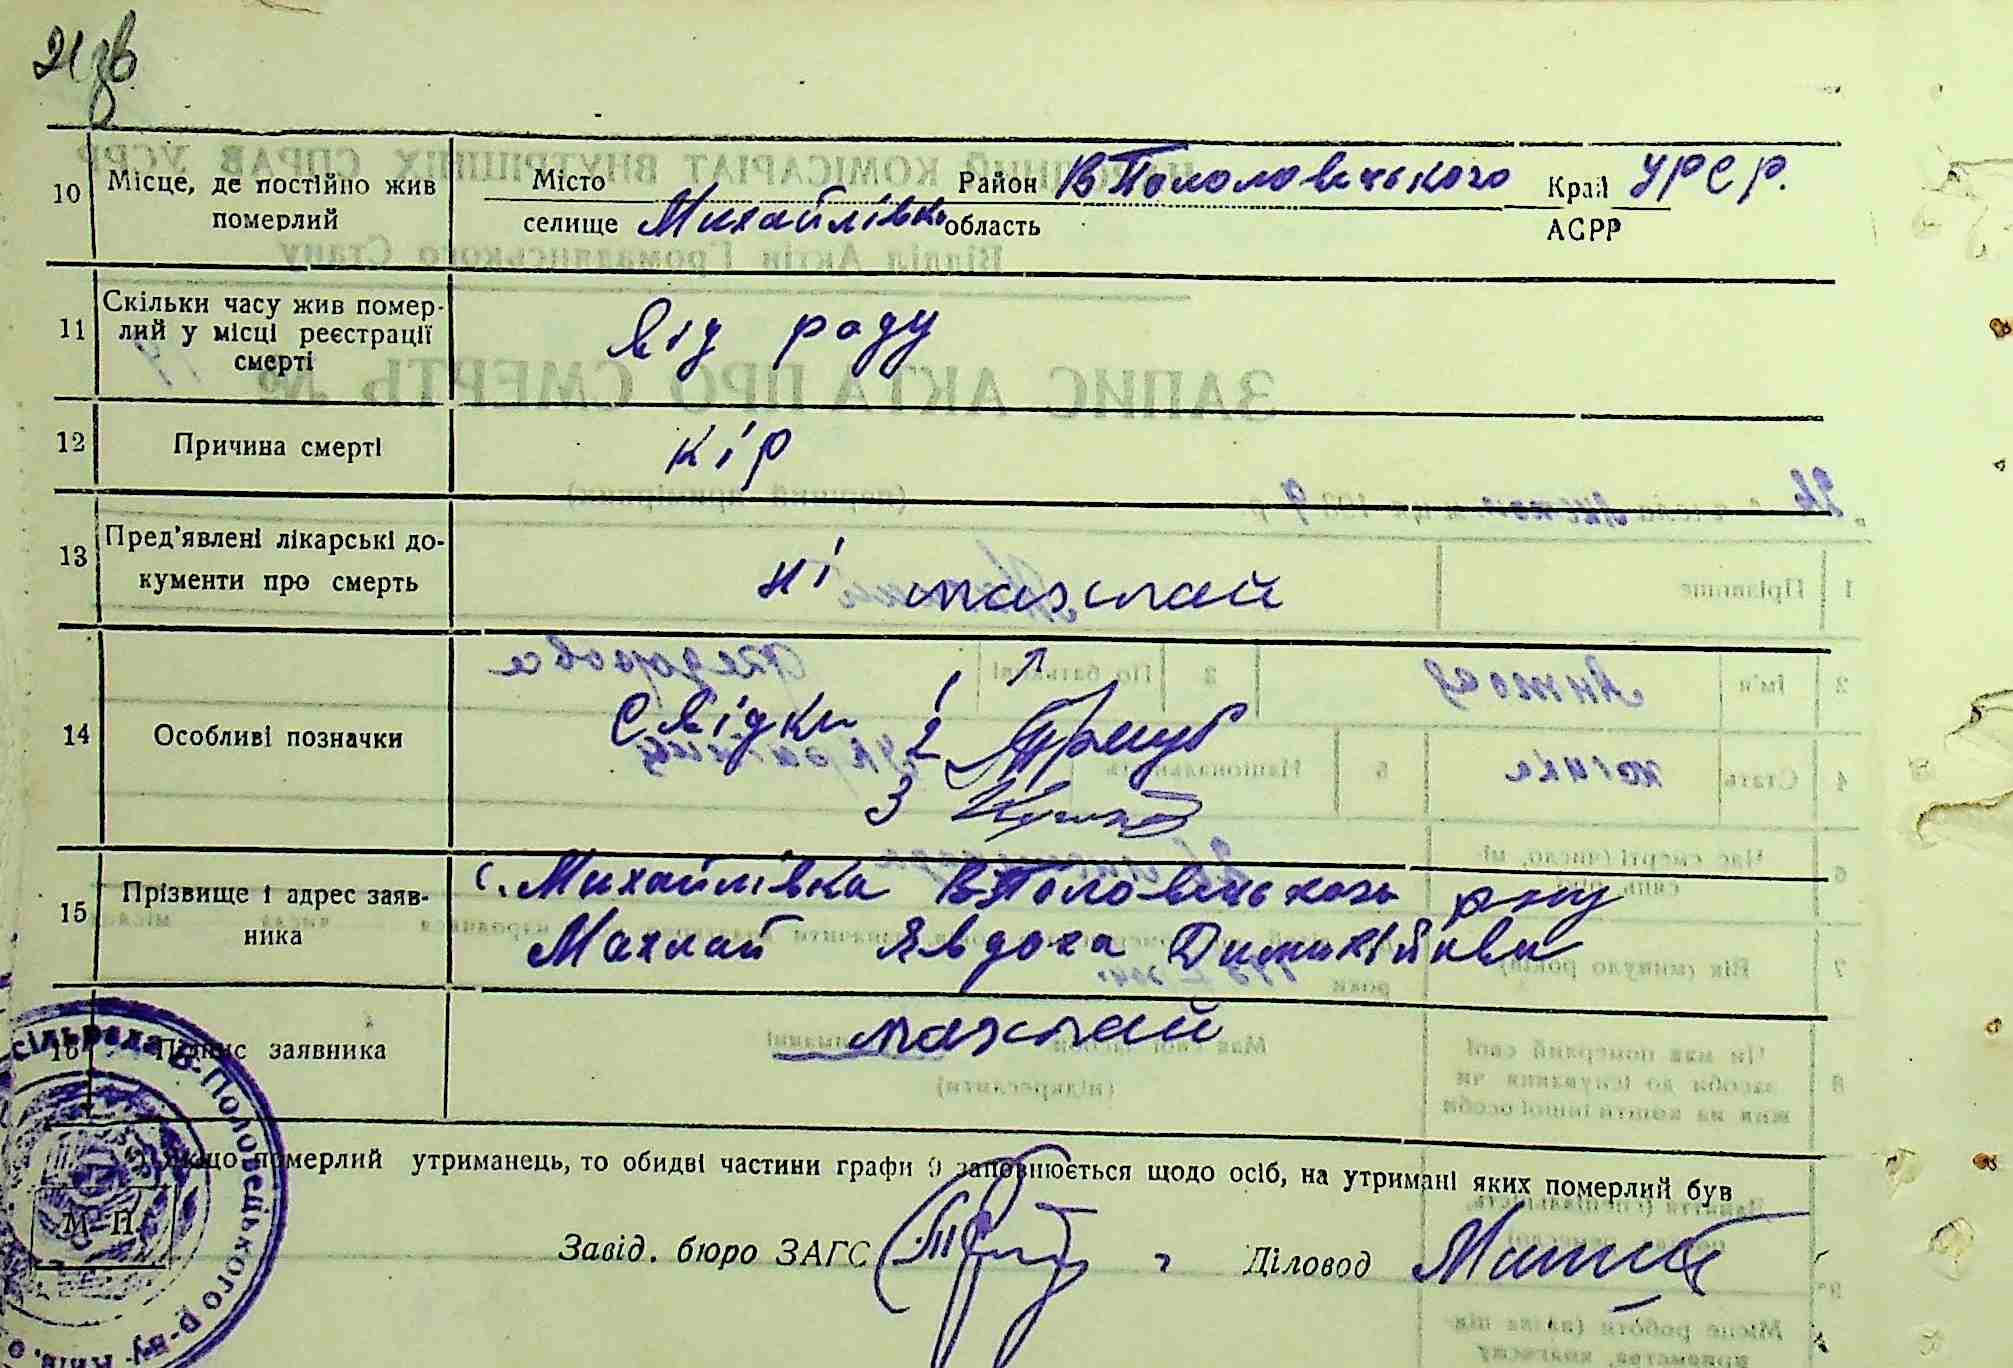 21 зв
10 Місце, де постійно жив померлий
Місто Район ВПололовецького Край УРСР.
селище Михайлівка область АСРР
11 Скільки часу жив помер-
лий у місці реєстрації
смерті
від роду
12 Причина смерті кір
13 Пред'явлені лікарські до-
кументи про смерть
ні махлай
14 Особливі позначки
Свідки 1
2
3
15 Прізвище і адрес заяв-
ника
с. Михайлівка ВПоловецького р-ну
Махлай Явдоха
16 Підпис заявника махлай
сільрада В-Половецького р-ну Київ. о
М. П.
Якщо померлий утриманець, то обидві частини графи 9 заповнюється щодо осіб, на утримані яких померлий був
Завід. бюро ЗАГС Діловод